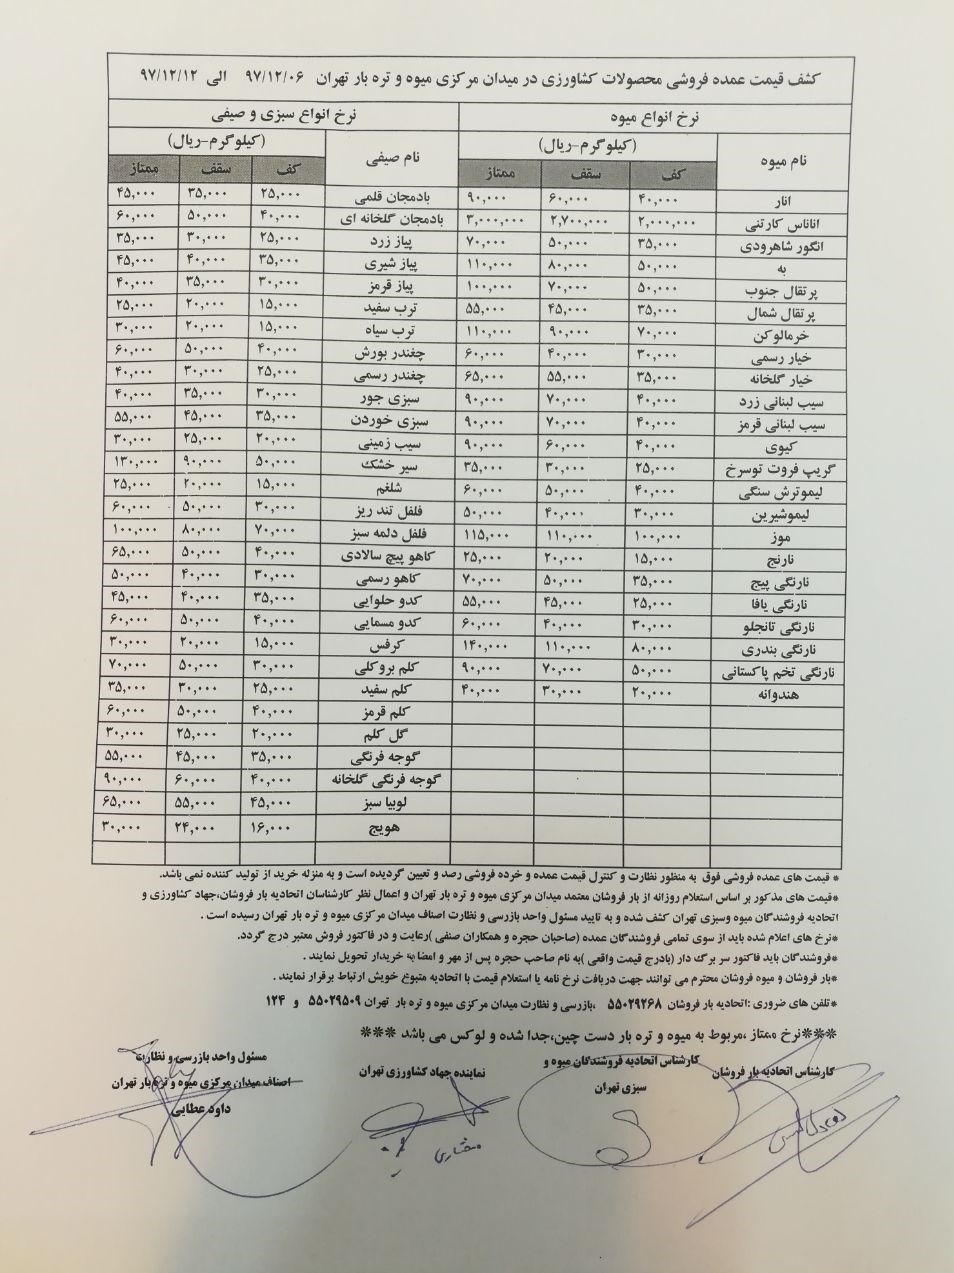 کشف قیمت عمده فروشی محصولات کشاورزی در میدان مرکزی میوه و تره بار تهران ۹۷/۱۲/۰۶ الی ۹۷/۱۲/۱۲
نرخ انواع میوه نرخ انواع سبزی و صیفی
نام میوه (کیلوگرم-ریال) نام صیفی (کیلوگرم-ریال)
کف سقف ممتاز کف سقف ممتاز
انار ۴۰,۰۰۰ ۶۰,۰۰۰ ۹۰,۰۰۰ بادمجان قلمی ۲۵,۰۰۰ ۳۵,۰۰۰ ۴۵,۰۰۰
اناناس کارتنی ۲,۰۰۰,۰۰۰ ۲,۷۰۰,۰۰۰ ۳,۰۰۰,۰۰۰ بادمجان گلخانه ای ۴۰,۰۰۰ ۵۰,۰۰۰ ۶۰,۰۰۰
انگور شاهرودی ۳۵,۰۰۰ ۵۰,۰۰۰ ۷۰,۰۰۰ پیاز زرد ۲۵,۰۰۰ ۳۰,۰۰۰ ۳۵,۰۰۰
به ۵۰,۰۰۰ ۸۰,۰۰۰ ۱۱۰,۰۰۰ پیاز شیری ۳۵,۰۰۰ ۴۰,۰۰۰ ۴۵,۰۰۰
پرتقال جنوب ۵۰,۰۰۰ ۷۰,۰۰۰ ۱۰۰,۰۰۰ پیاز قرمز ۳۰,۰۰۰ ۳۵,۰۰۰ ۴۰,۰۰۰
پرتقال شمال ۳۵,۰۰۰ ۴۵,۰۰۰ ۵۵,۰۰۰ ترب سفید ۱۵,۰۰۰ ۲۰,۰۰۰ ۲۵,۰۰۰
خرمالوکن ۷۰,۰۰۰ ۹۰,۰۰۰ ۱۱۰,۰۰۰ ترب سیاه ۱۵,۰۰۰ ۲۰,۰۰۰ ۳۰,۰۰۰
خیار رسمی ۳۰,۰۰۰ ۴۰,۰۰۰ ۶۰,۰۰۰ چغندر بورش ۴۰,۰۰۰ ۵۰,۰۰۰ ۶۰,۰۰۰
خیار گلخانه ۳۵,۰۰۰ ۵۵,۰۰۰ ۶۵,۰۰۰ چغندر رسمی ۲۵,۰۰۰ ۳۰,۰۰۰ ۴۰,۰۰۰
سیب لبنانی زرد ۴۰,۰۰۰ ۷۰,۰۰۰ ۹۰,۰۰۰ سبزی جور ۳۰,۰۰۰ ۳۵,۰۰۰ ۴۰,۰۰۰
سیب لبنانی قرمز ۴۰,۰۰۰ ۷۰,۰۰۰ ۹۰,۰۰۰ سبزی خوردن ۳۵,۰۰۰ ۴۵,۰۰۰ ۵۵,۰۰۰
کیوی ۴۰,۰۰۰ ۶۰,۰۰۰ ۹۰,۰۰۰ سیب زمینی ۲۰,۰۰۰ ۲۵,۰۰۰ ۳۰,۰۰۰
گریپ فروت توسرخ ۲۵,۰۰۰ ۳۰,۰۰۰ ۳۵,۰۰۰ سیر خشک ۵۰,۰۰۰ ۹۰,۰۰۰ ۱۳۰,۰۰۰
لیموترش سنگی ۴۰,۰۰۰ ۵۰,۰۰۰ ۶۰,۰۰۰ شلغم ۱۵,۰۰۰ ۲۰,۰۰۰ ۲۵,۰۰۰
لیموشیرین ۳۰,۰۰۰ ۴۰,۰۰۰ ۵۰,۰۰۰ فلفل تند ریز ۳۰,۰۰۰ ۵۰,۰۰۰ ۶۰,۰۰۰
موز ۱۰۰,۰۰۰ ۱۱۰,۰۰۰ ۱۱۵,۰۰۰ فلفل دلمه سبز ۷۰,۰۰۰ ۸۰,۰۰۰ ۱۰۰,۰۰۰
نارنج ۱۵,۰۰۰ ۲۰,۰۰۰ ۲۵,۰۰۰ کاهو پیچ سالادی ۴۰,۰۰۰ ۵۰,۰۰۰ ۶۵,۰۰۰
نارنگی پیج ۳۵,۰۰۰ ۵۰,۰۰۰ ۷۰,۰۰۰ کاهو رسمی ۳۰,۰۰۰ ۴۰,۰۰۰ ۵۰,۰۰۰
نارنگی یافا ۲۵,۰۰۰ ۴۵,۰۰۰ ۵۵,۰۰۰ کدو حلوایی ۳۵,۰۰۰ ۴۰,۰۰۰ ۴۵,۰۰۰
نارنگی تانجلو ۳۰,۰۰۰ ۴۰,۰۰۰ ۶۰,۰۰۰ کدو مسمایی ۴۰,۰۰۰ ۵۰,۰۰۰ ۶۰,۰۰۰
نارنگی بندری ۸۰,۰۰۰ ۱۱۰,۰۰۰ ۱۴۰,۰۰۰ کرفس ۱۵,۰۰۰ ۲۰,۰۰۰ ۳۰,۰۰۰
نارنگی تخم پاکستانی ۵۰,۰۰۰ ۷۰,۰۰۰ ۹۰,۰۰۰ کلم بروکلی ۳۰,۰۰۰ ۵۰,۰۰۰ ۷۰,۰۰۰
هندوانه ۲۰,۰۰۰ ۳۰,۰۰۰ ۴۰,۰۰۰ کلم سفید ۲۵,۰۰۰ ۳۰,۰۰۰ ۳۵,۰۰۰
کلم قرمز ۴۰,۰۰۰ ۵۰,۰۰۰ ۶۰,۰۰۰
گل کلم ۲۰,۰۰۰ ۲۵,۰۰۰ ۳۰,۰۰۰
گوجه فرنگی ۳۵,۰۰۰ ۴۵,۰۰۰ ۵۵,۰۰۰
گوجه فرنگی گلخانه ۴۰,۰۰۰ ۶۰,۰۰۰ ۹۰,۰۰۰
لوبیا سبز ۴۵,۰۰۰ ۵۵,۰۰۰ ۶۵,۰۰۰
هویج ۱۶,۰۰۰ ۲۴,۰۰۰ ۳۰,۰۰۰
* قیمت های عمده فروشی فوق به منظور نظارت و کنترل قیمت عمده و خرده فروشی رصد و تعیین گردیده است و به منزله خرید از تولید کننده نمی باشد.
*قیمت های مذکور بر اساس استعلام روزانه از بار فروشان معتمد میدان مرکزی میوه و تره بار تهران و اعمال نظر کارشناسان اتحادیه بار فروشان،جهاد کشاورزی و
اتحادیه فروشندگان میوه وسبزی تهران کشف شده و به تایید مسئول واحد بازرسی و نظارت اصناف میدان مرکزی میوه و تره بار تهران رسیده است .
*نرخ های اعلام شده باید از سوی تمامی فروشندگان عمده (صاحبان حجره و همکاران صنفی )رعایت و در فاکتور فروش معتبر درج گردد.
*فروشندگان باید فاکتور سر برگ دار (بادرج قیمت واقعی )به نام صاحب حجره پس از مهر و امضا به خریدار تحویل نمایند .
*بار فروشان و میوه فروشان محترم می توانند جهت دریافت نرخ نامه یا استعلام قیمت با اتحادیه متبوع خویش ارتباط برقرار نمایند .
*تلفن های ضروری :اتحادیه بار فروشان ۵۵۰۲۹۲۶۸ ،بازرسی و نظارت میدان مرکزی میوه و تره بار تهران ۵۵۰۲۹۵۰۹ و ۱۲۴
***نرخ ممتاز ،مربوط به میوه و تره بار دست چین،جدا شده و لوکس می باشد ***
کارشناس اتحادیه بار فروشان
کارشناس اتحادیه فروشندگان میوه و
سبزی تهران
نماینده جهاد کشاورزی تهران
مختاری
مسئول واحد بازرسی و نظارت
اصناف میدان مرکزی میوه و تره بار تهران
داود عطایی